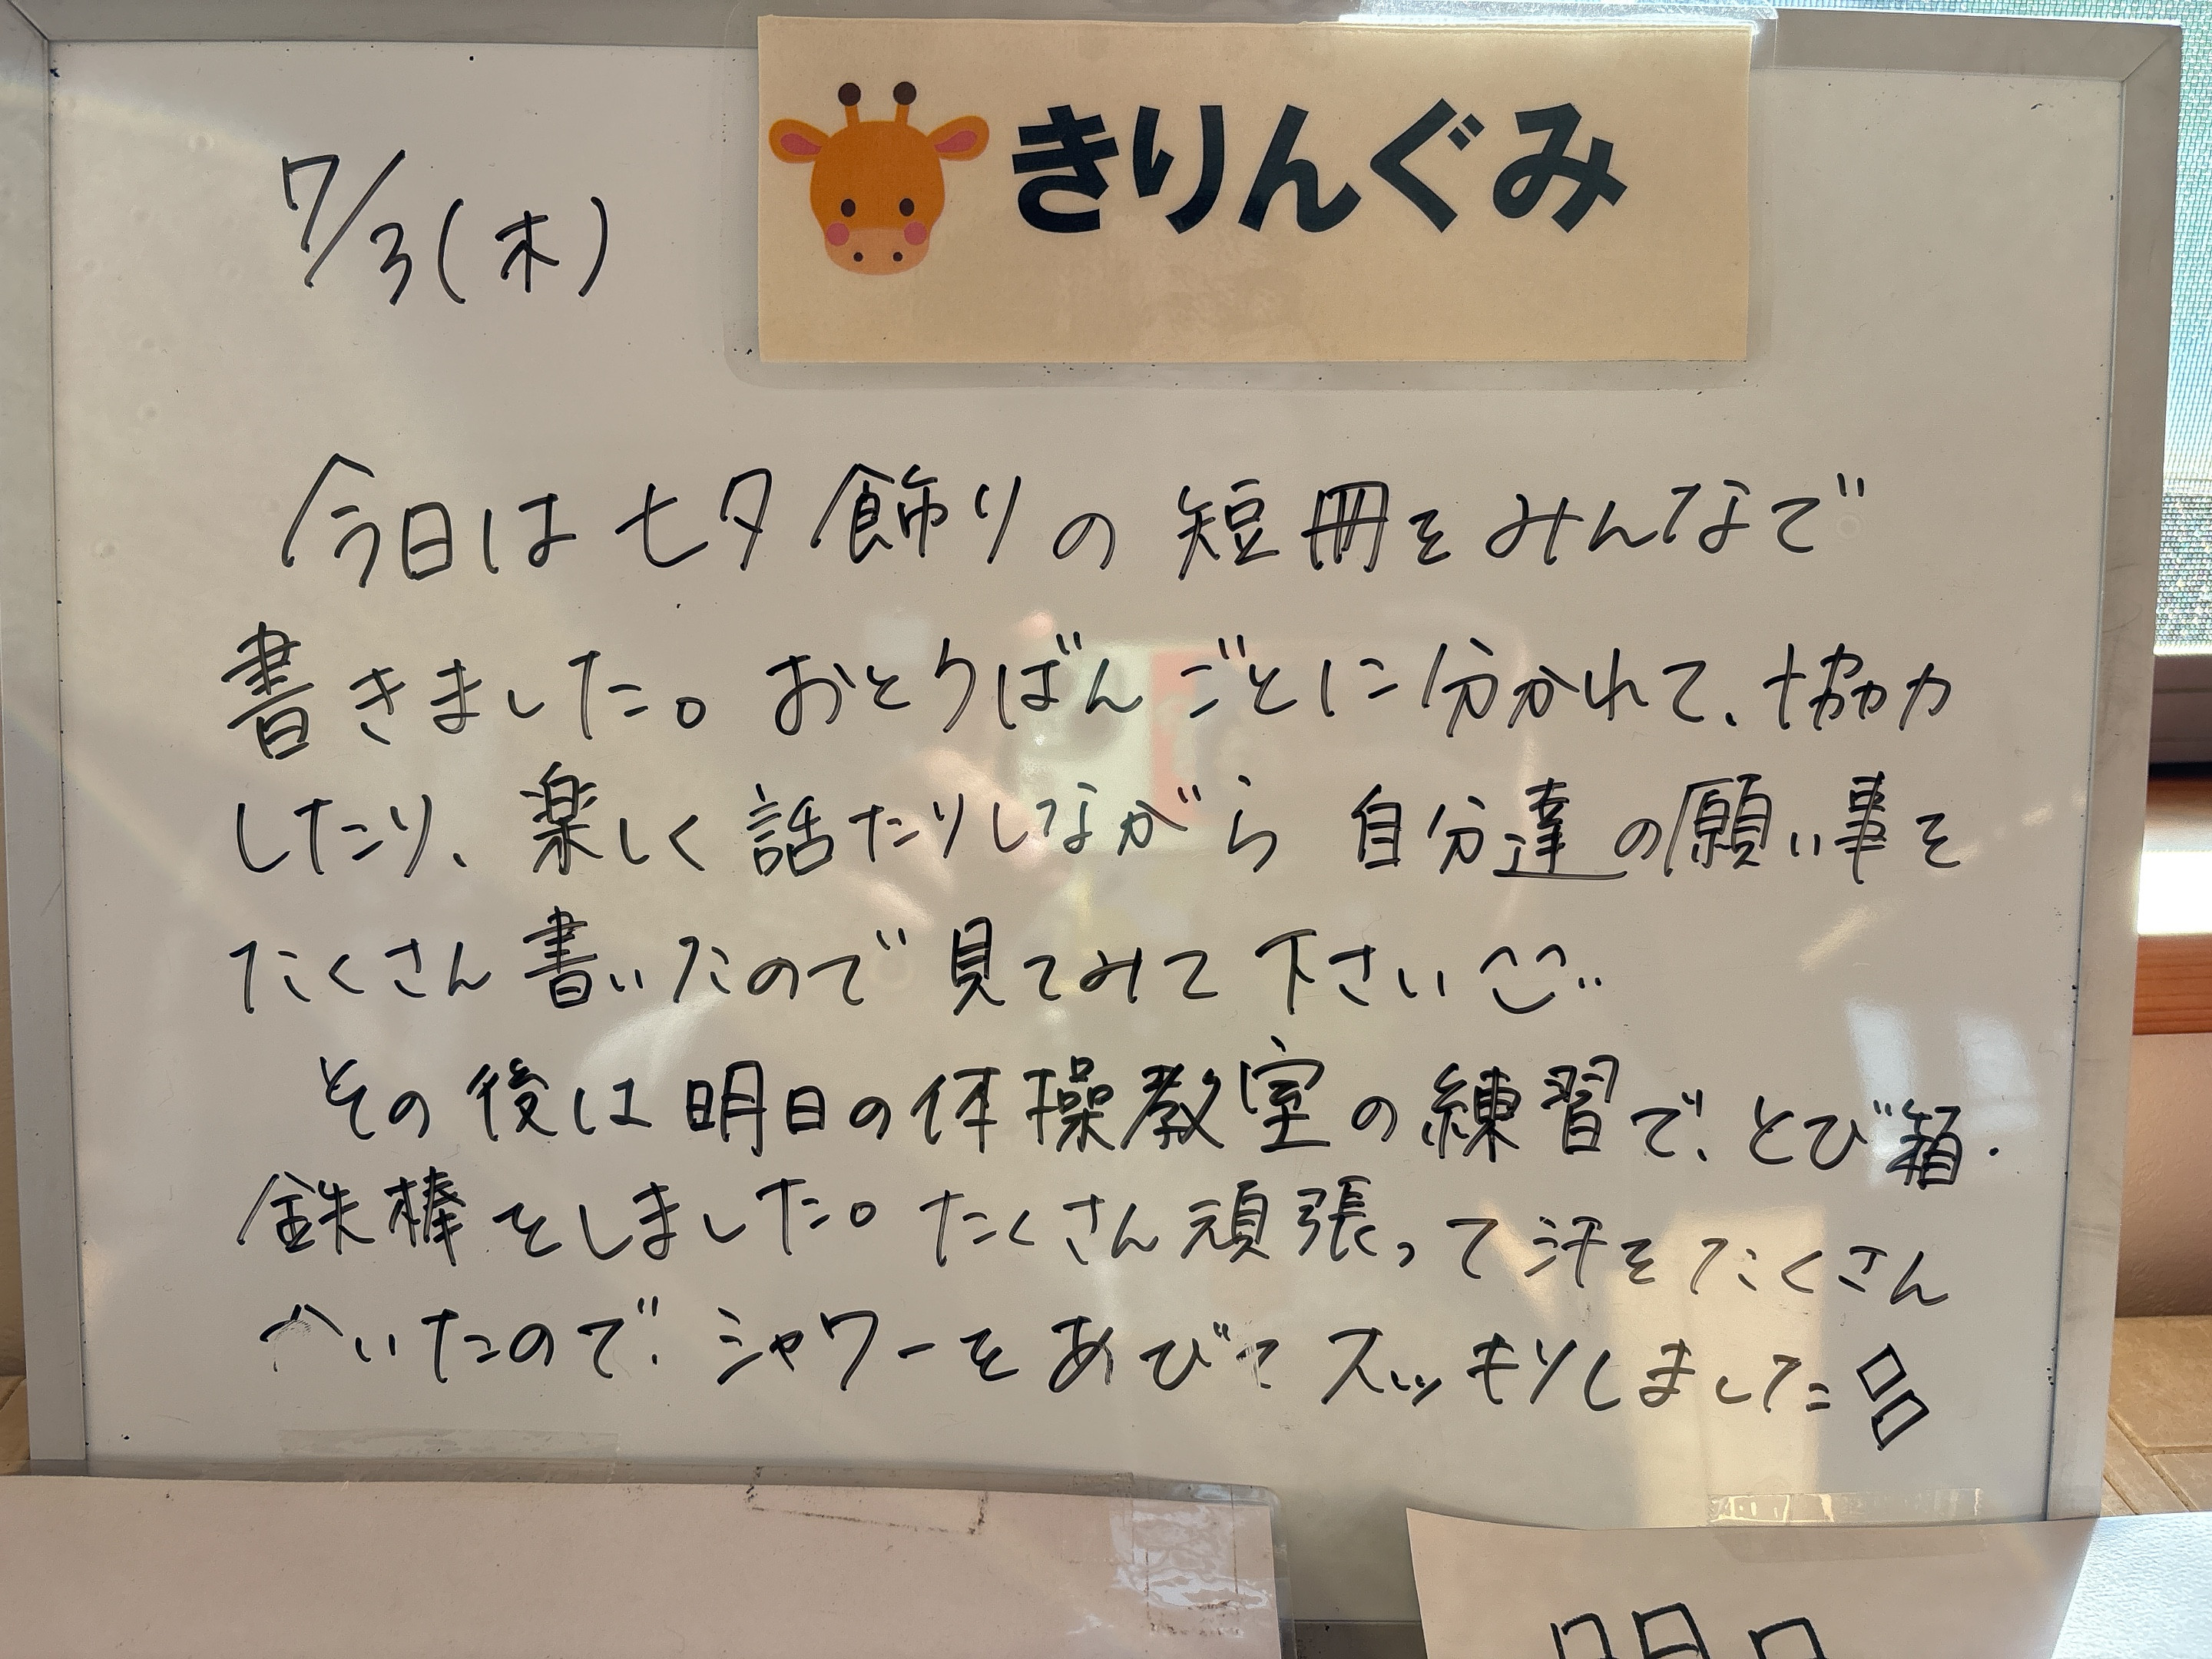 きりんぐみ
7/3(木)
今日は七夕飾りの短冊をみんなで
書きました。おとりばんごとに分かれて、協力
したり、楽しく話たりしながら自分達の願い事を
たくさん書いたので見てみて下さい
その後は明日の体操教室の練習で、とび箱・
鉄棒をしました。たくさん頑張って汗をたくさん
かいたので、シャワーをあびてスッキリしました